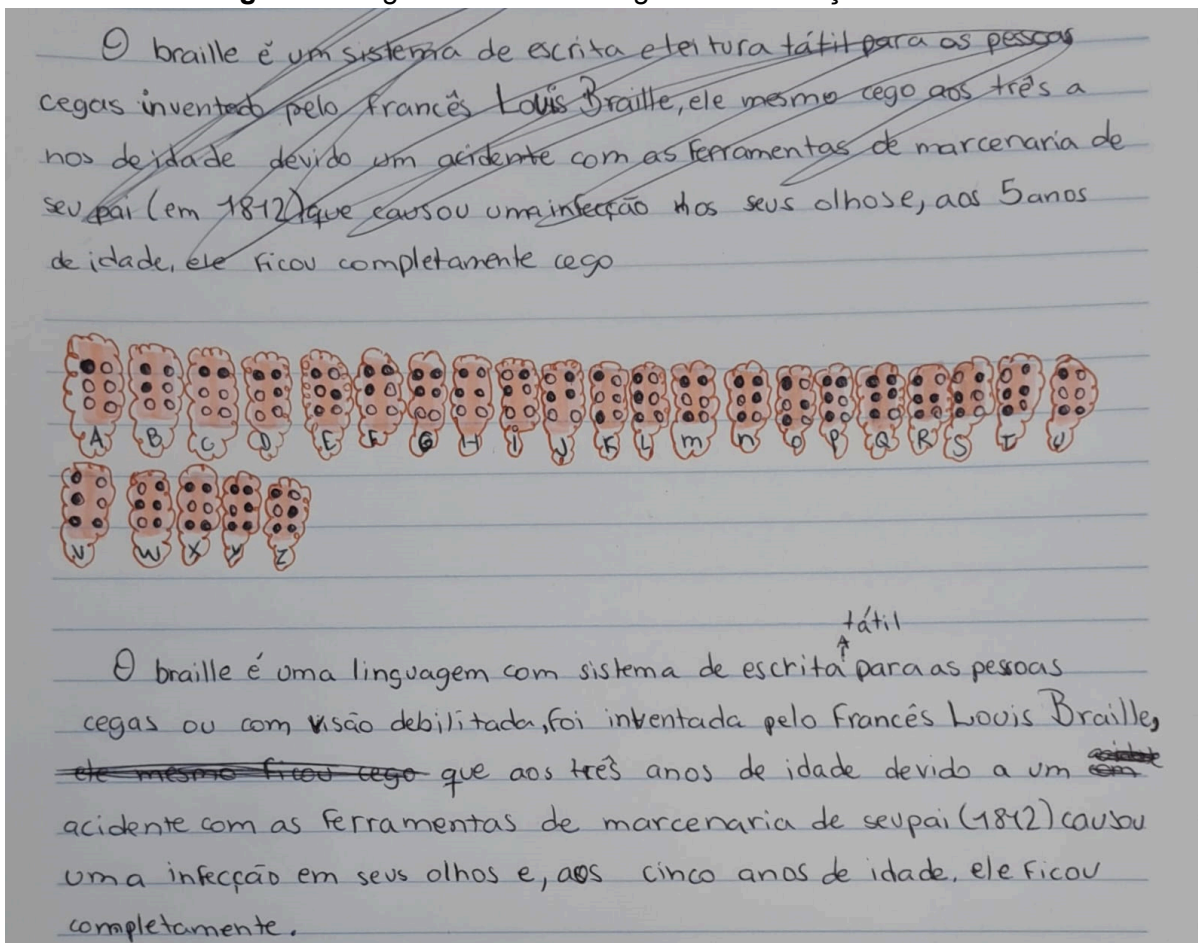 O braille é um sistema de escrita e leitura tátil para as pessoas
cegas inventado pelo francês Louis Braille, ele mesmo cego aos três a
nos de idade devido um acidente com as ferramentas de marcenaria de
seu pai (em 1812) que causou uma infecção nos seus olhos e, aos 5 anos
de idade, ele ficou completamente cego
A B C D E F G H I J K L m n o P Q R S T U
V W X Y Z
tátil
O braille é uma linguagem com sistema de escrita para as pessoas
cegas ou com visão debilitada, foi inventada pelo francês Louis Braille,
ele mesmo ficou cego que aos três anos de idade devido a um
acidente com as ferramentas de marcenaria de seu pai (1812) causou
uma infecção em seus olhos e, aos cinco anos de idade, ele ficou
completamente.